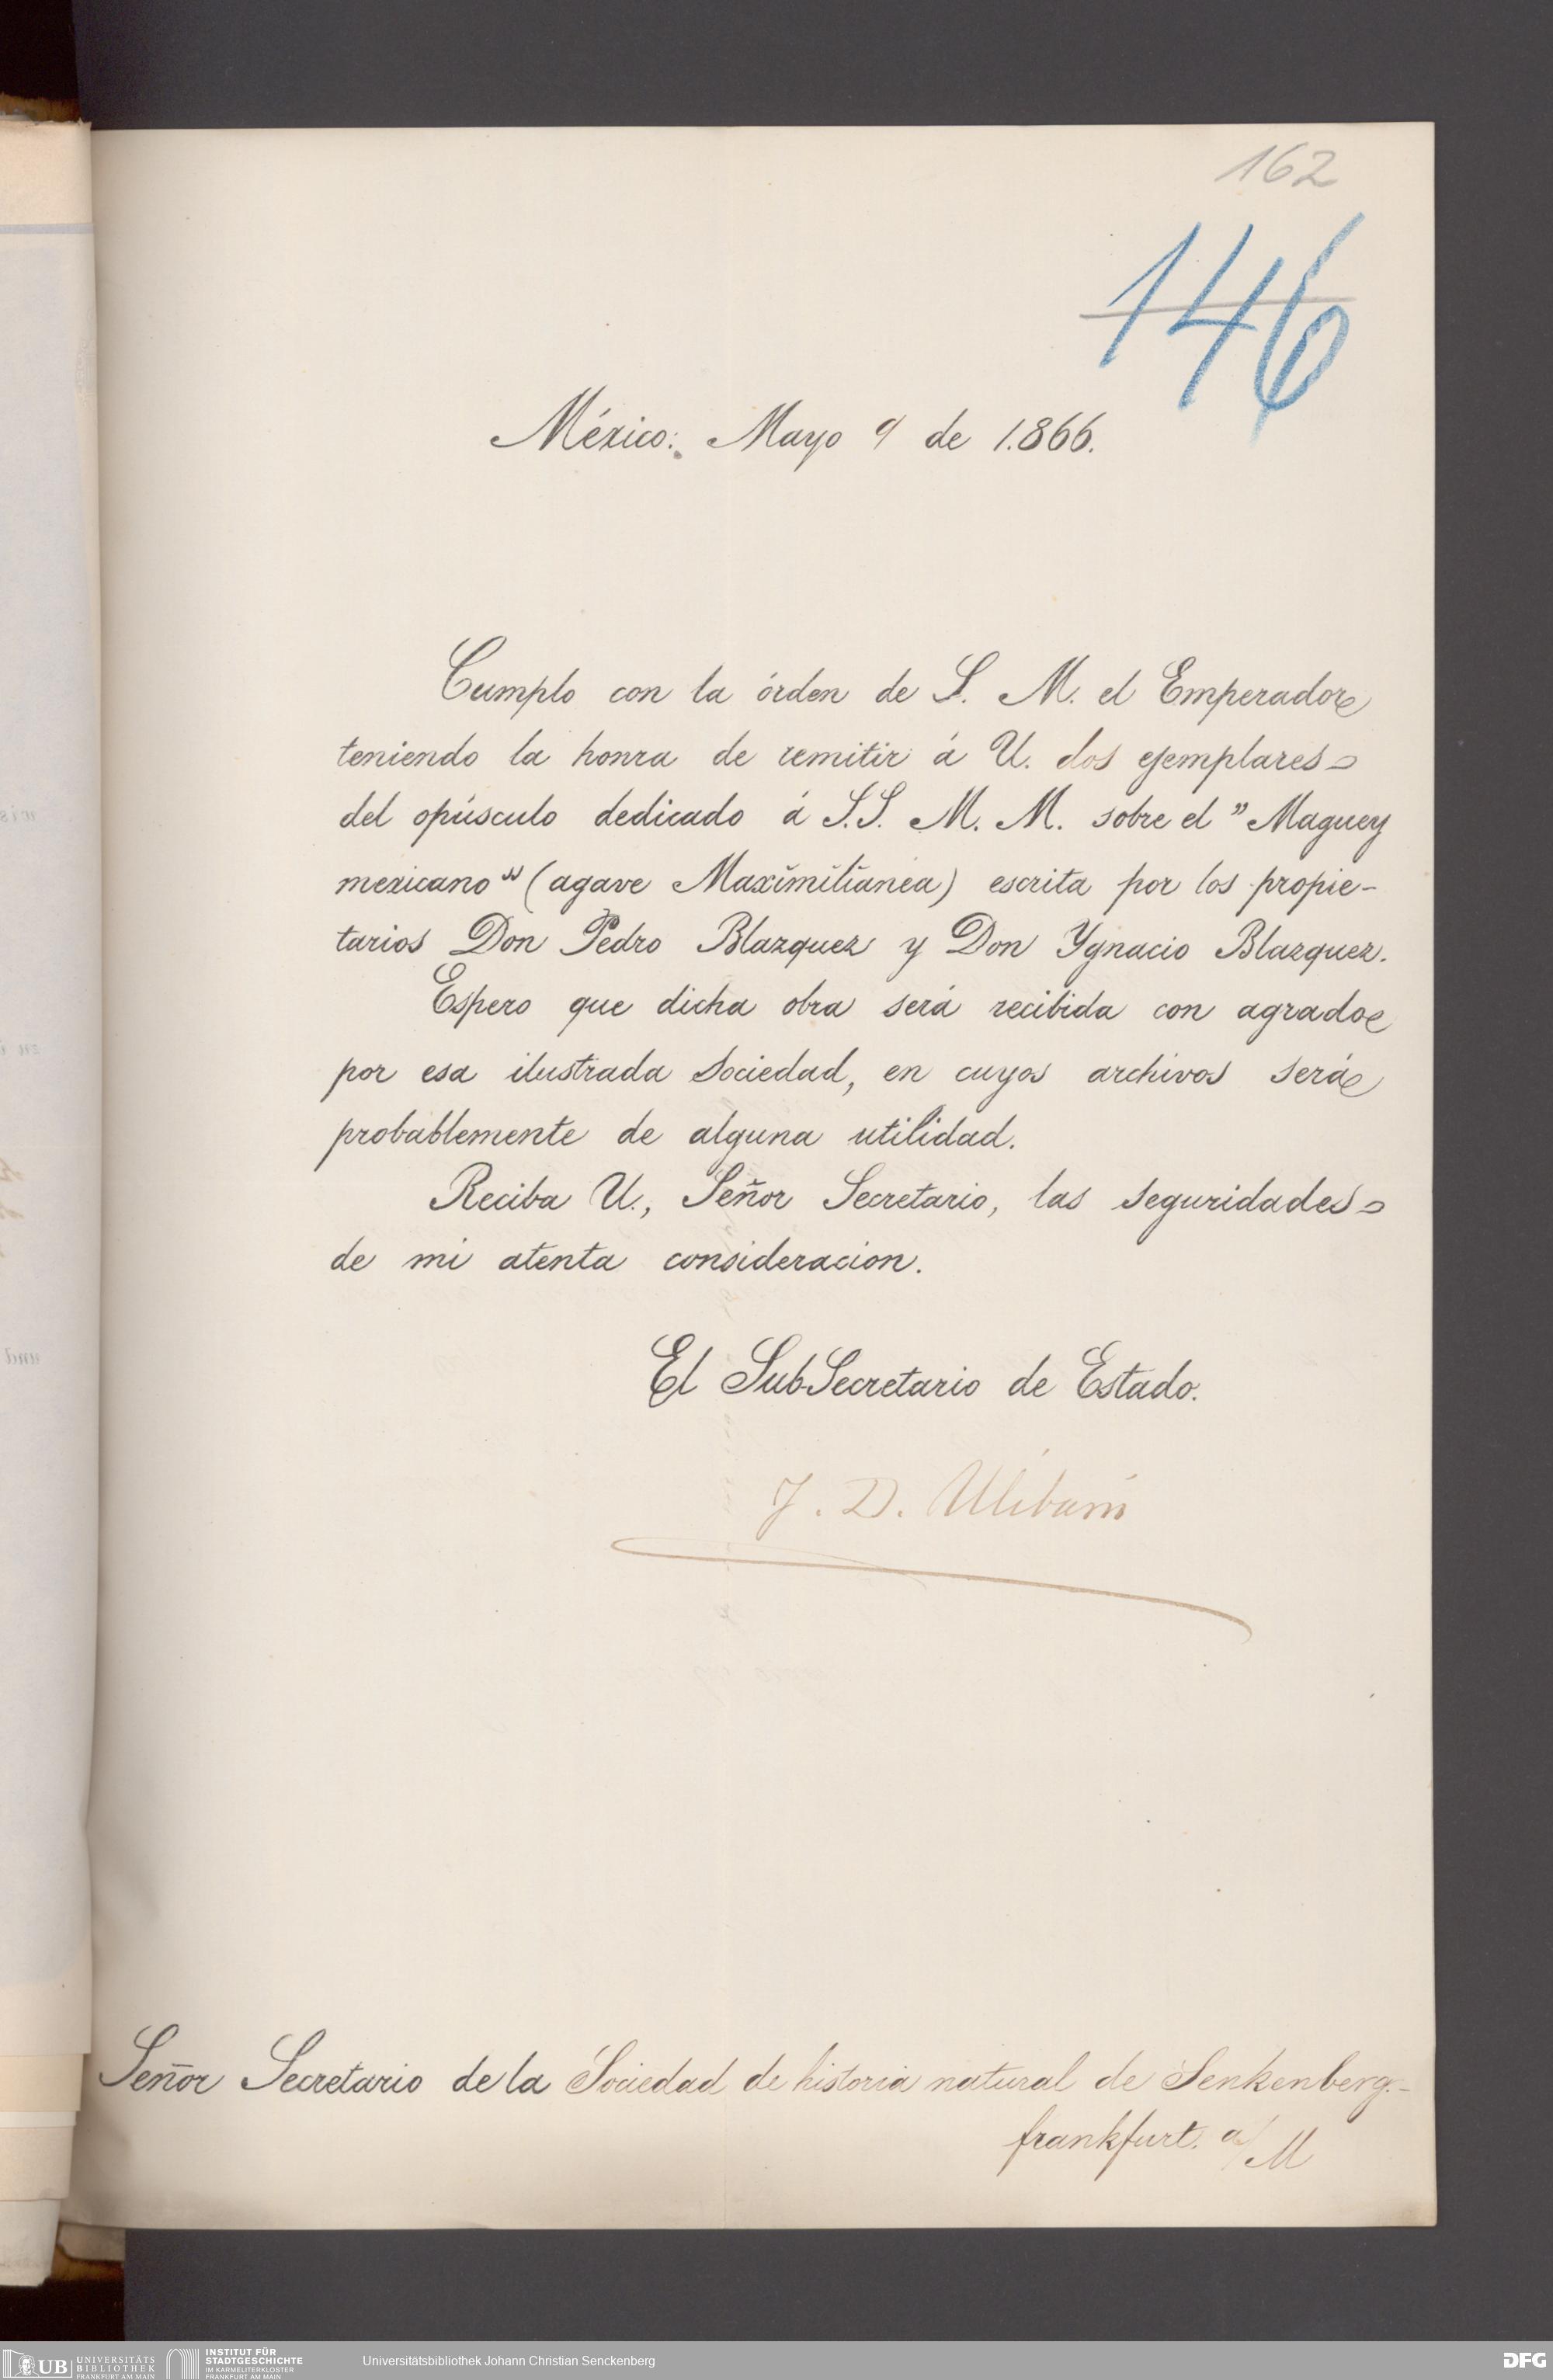 162
146
México: Mayo 9 de 1.866.
Cumplo con la órden de S. M. el Emperador
teniendo la honra de remitir á U. dos ejemplares
del opúsculo dedicado á S.S. M. M. sobre el "Maguey
mexicano" (agave Maximilianea) escrita por los propie-
tarios Don Pedro Blazquez y Don Ygnacio Blazquez.
Espero que dicha obra será recibida con agrado
por esa ilustrada Sociedad, en cuyos archivos será
probablemente de alguna utilidad.
Reciba U., Señor Secretario, las seguridades
de mi atenta consideracion.
El SubSecretario de Estado.
J. D. Ulibarri
Señor Secretario de la Sociedad de historia natural de Senkenberg.-
frankfurt. a/M
UB UNIVERSITÄTS
BIBLIOTHEK
FRANKFURT AM MAIN
INSTITUT FÜR
STADTGESCHICHTE
IM KARMELITERKLOSTER
FRANKFURT AM MAIN
Universitätsbibliothek Johann Christian Senckenberg
DFG